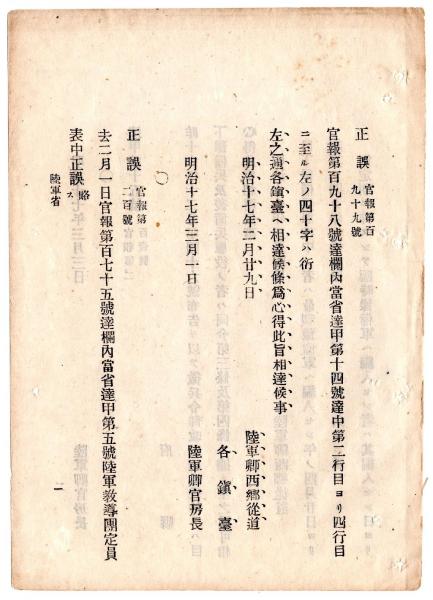 正誤 官報第百九十九號
官報第百九十八號達欄內當省達甲第十四號達中第二行目ヨリ四行目
ニ至ル左ノ四十字ハ衍
左之通各鎭臺ヘ相達候條爲心得此旨相達候事
明治十七年二月廿九日 陸軍卿西鄕從道
各鎭臺
明治十七年三月一日 陸軍卿官房長
○
正誤 官報第二百號
去二月一日官報第百七十五號達欄內當省達甲第五號陸軍敎導團定員
表中正誤 略ス 陸軍省
二